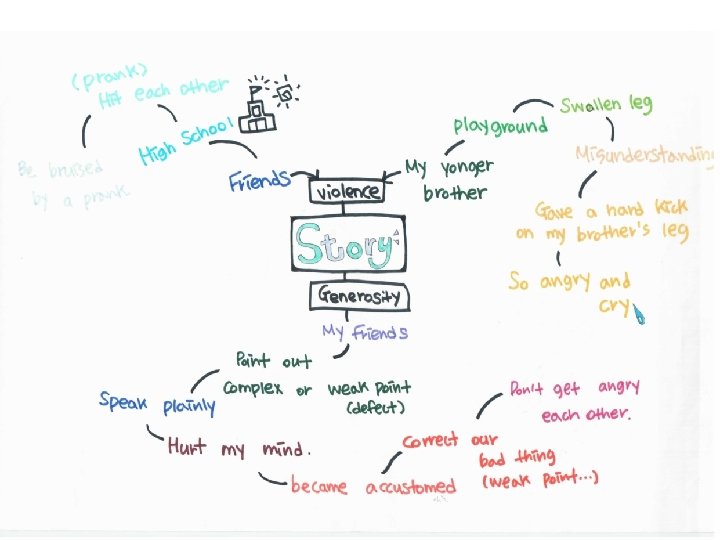 Story
violence
Friends
High School
(prank)
Hit each other
Be bruised
by a prank
My yonger
brother
playground
Swallen leg
Misunderstanding
Gave a hard kick
on my brother's leg
So angry and
cry
Generosity
My Friends
Point out
complex or weak point
(defect)
Speak plainly
Hurt my mind.
became accustomed
correct our
bad thing
(weak point...)
Don't get angry
each other.